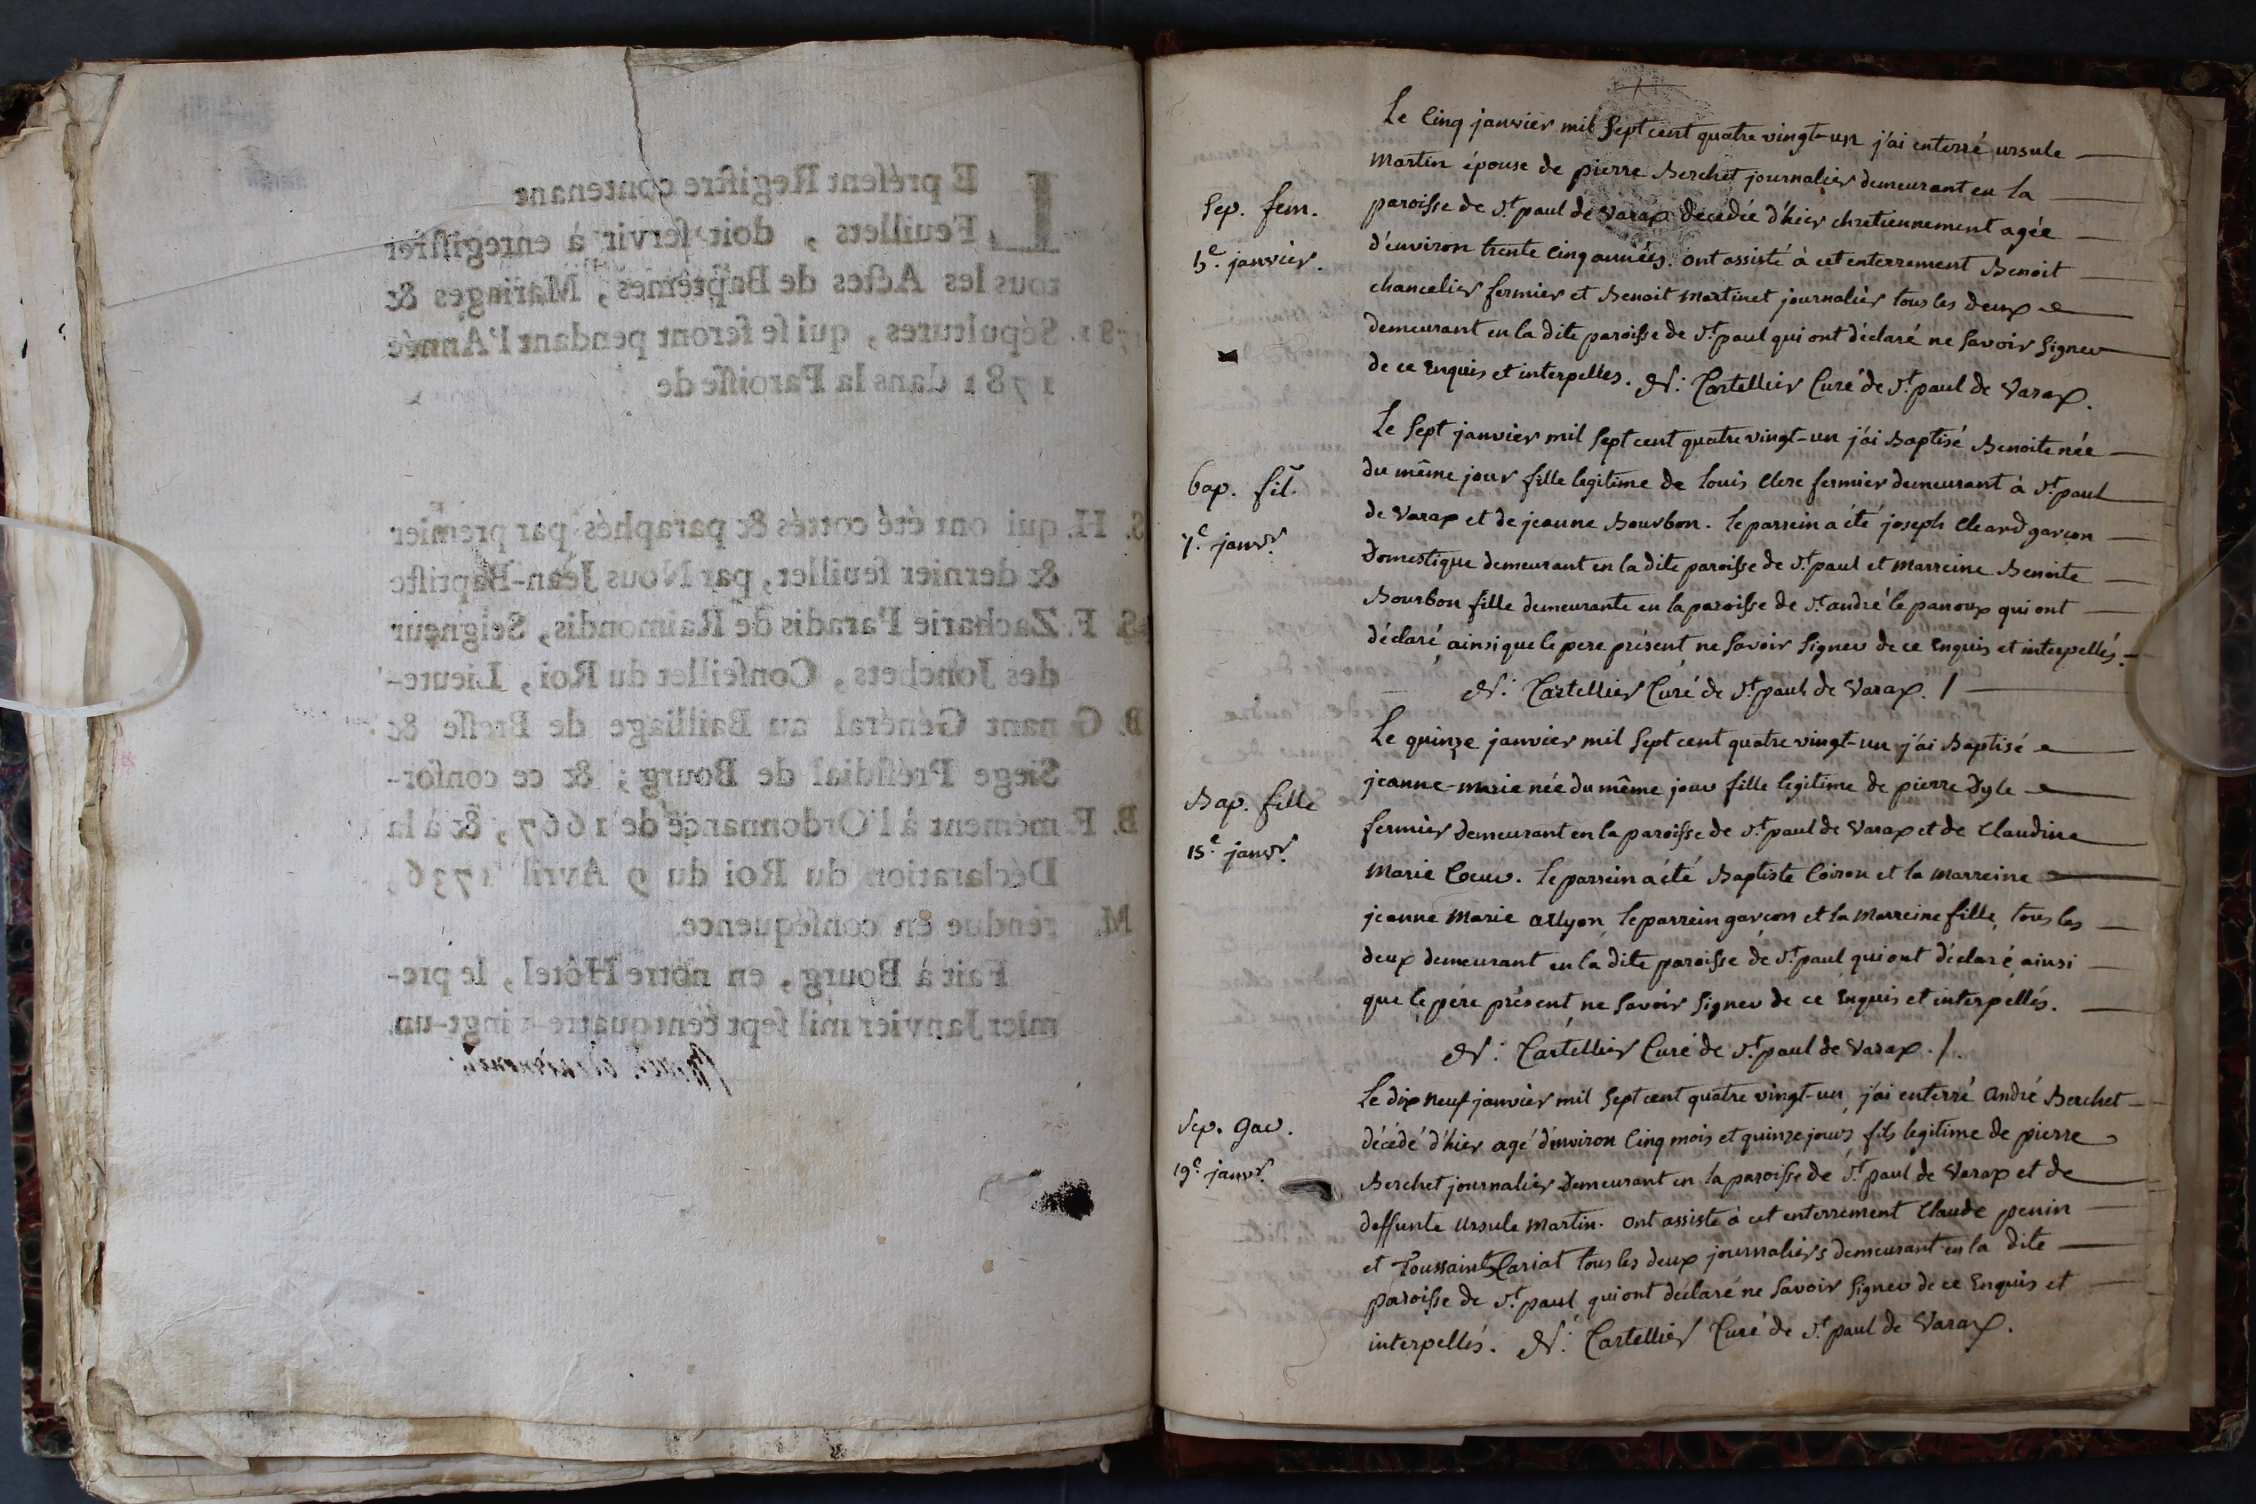 LE présent Registre contenant
Feuillets, doit servir à enregistrer
tous les Actes de Baptêmes, Mariages &
1781. Sépultures, qui se feront pendant l'Année
1781 dans la Paroisse de
S. H. qui ont été cottés & paraphés par premier
& dernier feuillet, par Nous Jean-Baptiste
S. F. Zacharie Paradis de Raimondis, Seigneur
des Jonchets, Conseiller du Roi, Lieute-
B. G. nant Général au Bailliage de Bresse &
Siege Présidial de Bourg; & ce confor-
B. F. mément à l'Ordonnance de 1667, & à la
Déclaration du Roi du 9 Avril 1736,
M. rendue en conséquence.
Fait à Bourg, en notre Hôtel, le pre-
mier Janvier mil sept cent quatre-vingt-un.
Le Cinq janvier mil Sept cent quatre vingt-un j'ai enterré ursule
Martin épouse de pierre Berchet journalier demeurant en la
Sep. fem.
paroisse de St. paul de Varax décédée d'hier chretiennement agée
5e. janvier.
d'environ trente Cinq années. Ont assisté à cet enterrement Benoit
chancelier fermier et Benoit Martinet journalier tous les deux
demeurant en la dite paroisse de St. paul qui ont déclaré ne Savoir Signer
de ce Enquis et interpellés. N: Cartellier Curé de St. paul de Varax.
Le Sept janvier mil Sept cent quatre vingt-un j'ai Baptisé Benoite née
bap. fil.
du même jour fille legitime de Louis Clerc fermier demeurant à St. paul
de Varax et de jeanne Bourbon. Le parrein a été joseph Cleard garçon
7e. janvr.
Domestique demeurant en la dite paroisse de St. paul et Marreine Benoite
Bourbon fille demeurante en la paroisse de St. andré le panoux qui ont
déclaré ainsi que le pere présent ne Savoir Signer de ce Enquis et interpellés.
N: Cartellier Curé de St. paul de Varax. /
Le quinze janvier mil Sept cent quatre vingt-un j'ai Baptisé
jeanne-marie née du même jour fille legitime de pierre Dyle
Bap. fille
fermier Demeurant en la paroisse de St. paul de Varax et de Claudine
15e. janvr.
Marie Cocur. Le parrein a été Baptiste Coiron et la Marreine
jeanne Marie allyon, le parrein garcon et la Marreine fille, tous les
deux demeurant en la dite paroisse de St. paul qui ont déclaré ainsi
que le pére présent ne Savoir Signer de ce Enquis et interpéllés.
N: Cartellier Curé de St. paul de Varax. /.
Le dix Neuf janvier mil Sept cent quatre vingt-un j'ai enterré André Berchet
Sep. gar.
décédé d'hier agé d'environ Cinq mois et quinze jours fils legitime de pierre
19e. janvr.
Berchet journalier Demeurant en la paroisse de St. paul de Varax et de
deffunte Ursule Martin. Ont assisté à cet enterrement Claude penin
et Toussaint Cariat tous les deux journaliers demeurant en la dite
paroisse de St. paul qui ont déclaré ne Savoir Signer de ce Enquis et
interpellés. N: Cartellier Curé de St. paul de Varax.